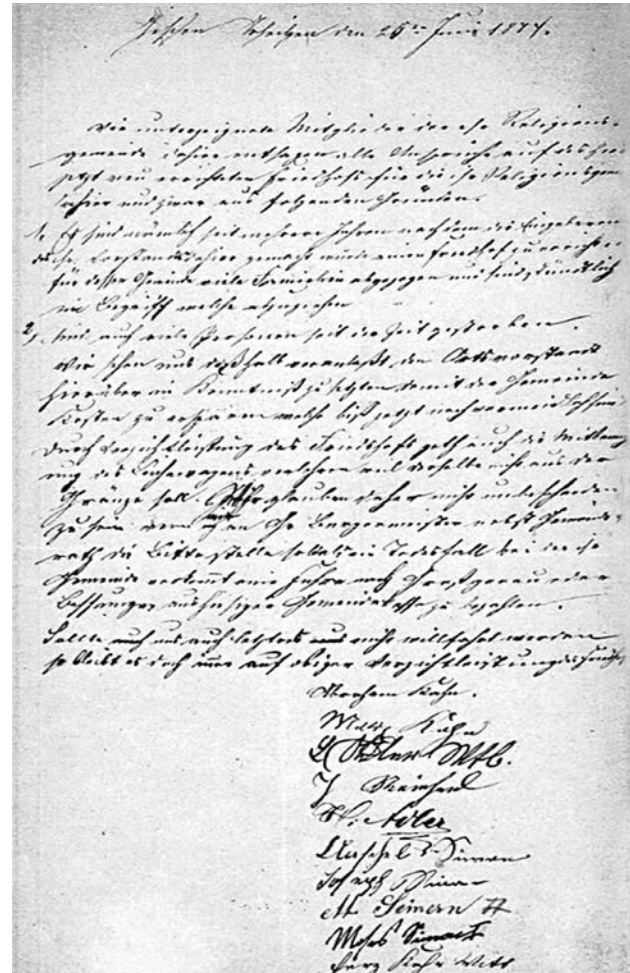 den 25ten Juni 1874.
Wir unterzeignete Mitglieder der isr. Religions-
gemeinde dahier entsagen alle Ansprüche auf des hier
jetzt neu errichteten Friedhofs für die isr. Religionsgem
dahier und zwar aus folgenden Gründen.
1. Es sind nämlich seit mehrere Jahren nachdem die Eingabe von
isr. Vorstands dahier gemacht wurde einen Friedhof zu errichten
für diese Gemeinde viele Familien abgezogen und sind stündlich
im Begriff welche abzuziehen
2, Sind auch viele Personen seit der Zeit gestorben.
Wir sehen uns deßhalb veranlaßt, den Ortsvorstand
hierüber in Kenntniß zu setzten damit der Gemeinde
Kosten zu ersparen welche bis jetzt noch vermeidlich sind
Durch Verzichtleistung des Friedhofs geth auch die Mittheilung
des Leichewagens verlohren weil derselbe nicht aus der
Gränze soll. Wir glauben daher nicht unbescheiden
zu sein wenn wir an Gr. Bürgermeister nebst Gemeinde-
rath die Bitte stelle sobald ein Todesfall bei der isr.
Gemeinde vorkommt eine Fuhre nach Großgerau oder
Bessungen aus hiesiger Gemeindekasse zu bezahlen.
Sollte uns auch letzteres nicht willfahrt werden
so bleibt es doch immer auf obiger Verzichtleistung des Friedhofs
Abraham Kahn.
Kahn
Adler Wtb.
J Reinhard
Adler
Simon
Joseph Simon
M Seimern II
Moses Simon
Kahn